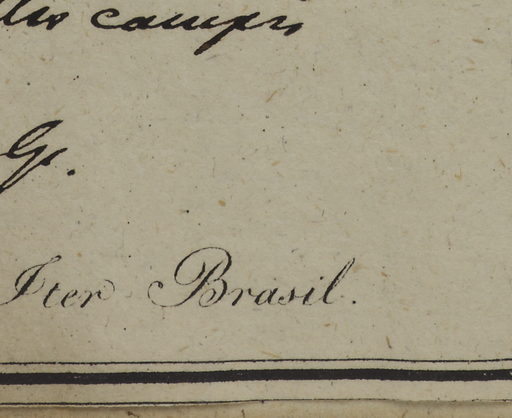 campis
G.
Iter Brasil.